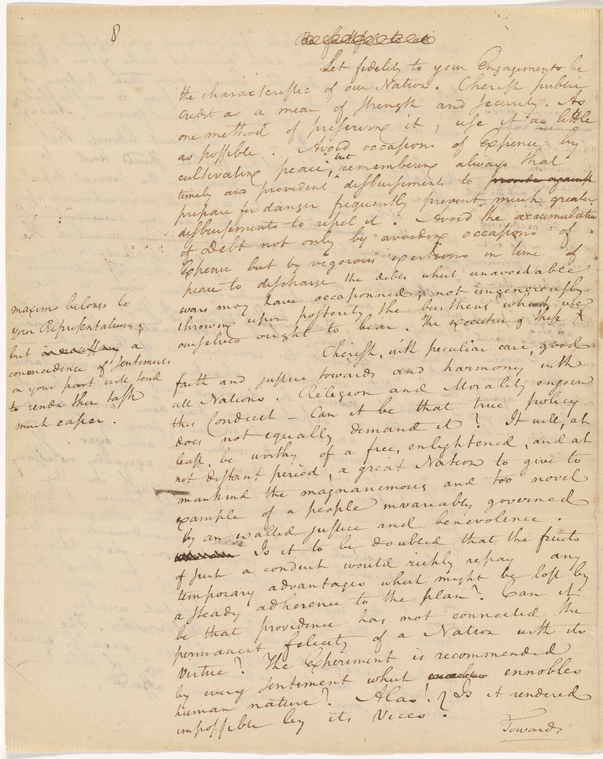 8
Let fidelity to your Engagements be
the characteristic of our Nation. Cherish public
Credit as a mean of strength and security. As
one method of preserving it, use it as little
as possible. Avoid occasions of Expence by
cultivating peace, but remembering always that
timely and provident disbursements to provide against
prepare for danger frequently prevent much greater
disbursements to repel it. Avoid the accumulation
of Debt not only by avoiding occasions of
Expence but by vigorous exertions in time of
peace to discharge the debts which unavoidable
wars may have occasionned; not ungenerously
throwing upon posterity the burthens which we
ourselves ought to bear. The execution of these
maxims belongs to
your Representatives,
but a
coincidence of sentiments
on your part will tend
to render their task
much easier.
Cherish, with peculiar care, good
faith and justice towards and harmony with
all Nations. Religion and Morality enjoin
this Conduct. Can it be that true policy
does not equally demand it? It will, at
least, be worthy of a free, enlightened, and at
not distant period, a great Nation to give to
mankind the magnanimous and too novel
example of a people invariably governed
by an exalted justice and benevolence.
Is it to be doubted that the fruits
of such a conduct would richly repay any
temporary advantages which might be lost by
a steady adherence to the plan? Can it
be that providence has not connected the
permanent felicity of a Nation with its
Virtue? The Experiment is recommended
by every sentiment which ennobles
human nature? Alas! Is it rendered
impossible by its Vices?
Towards